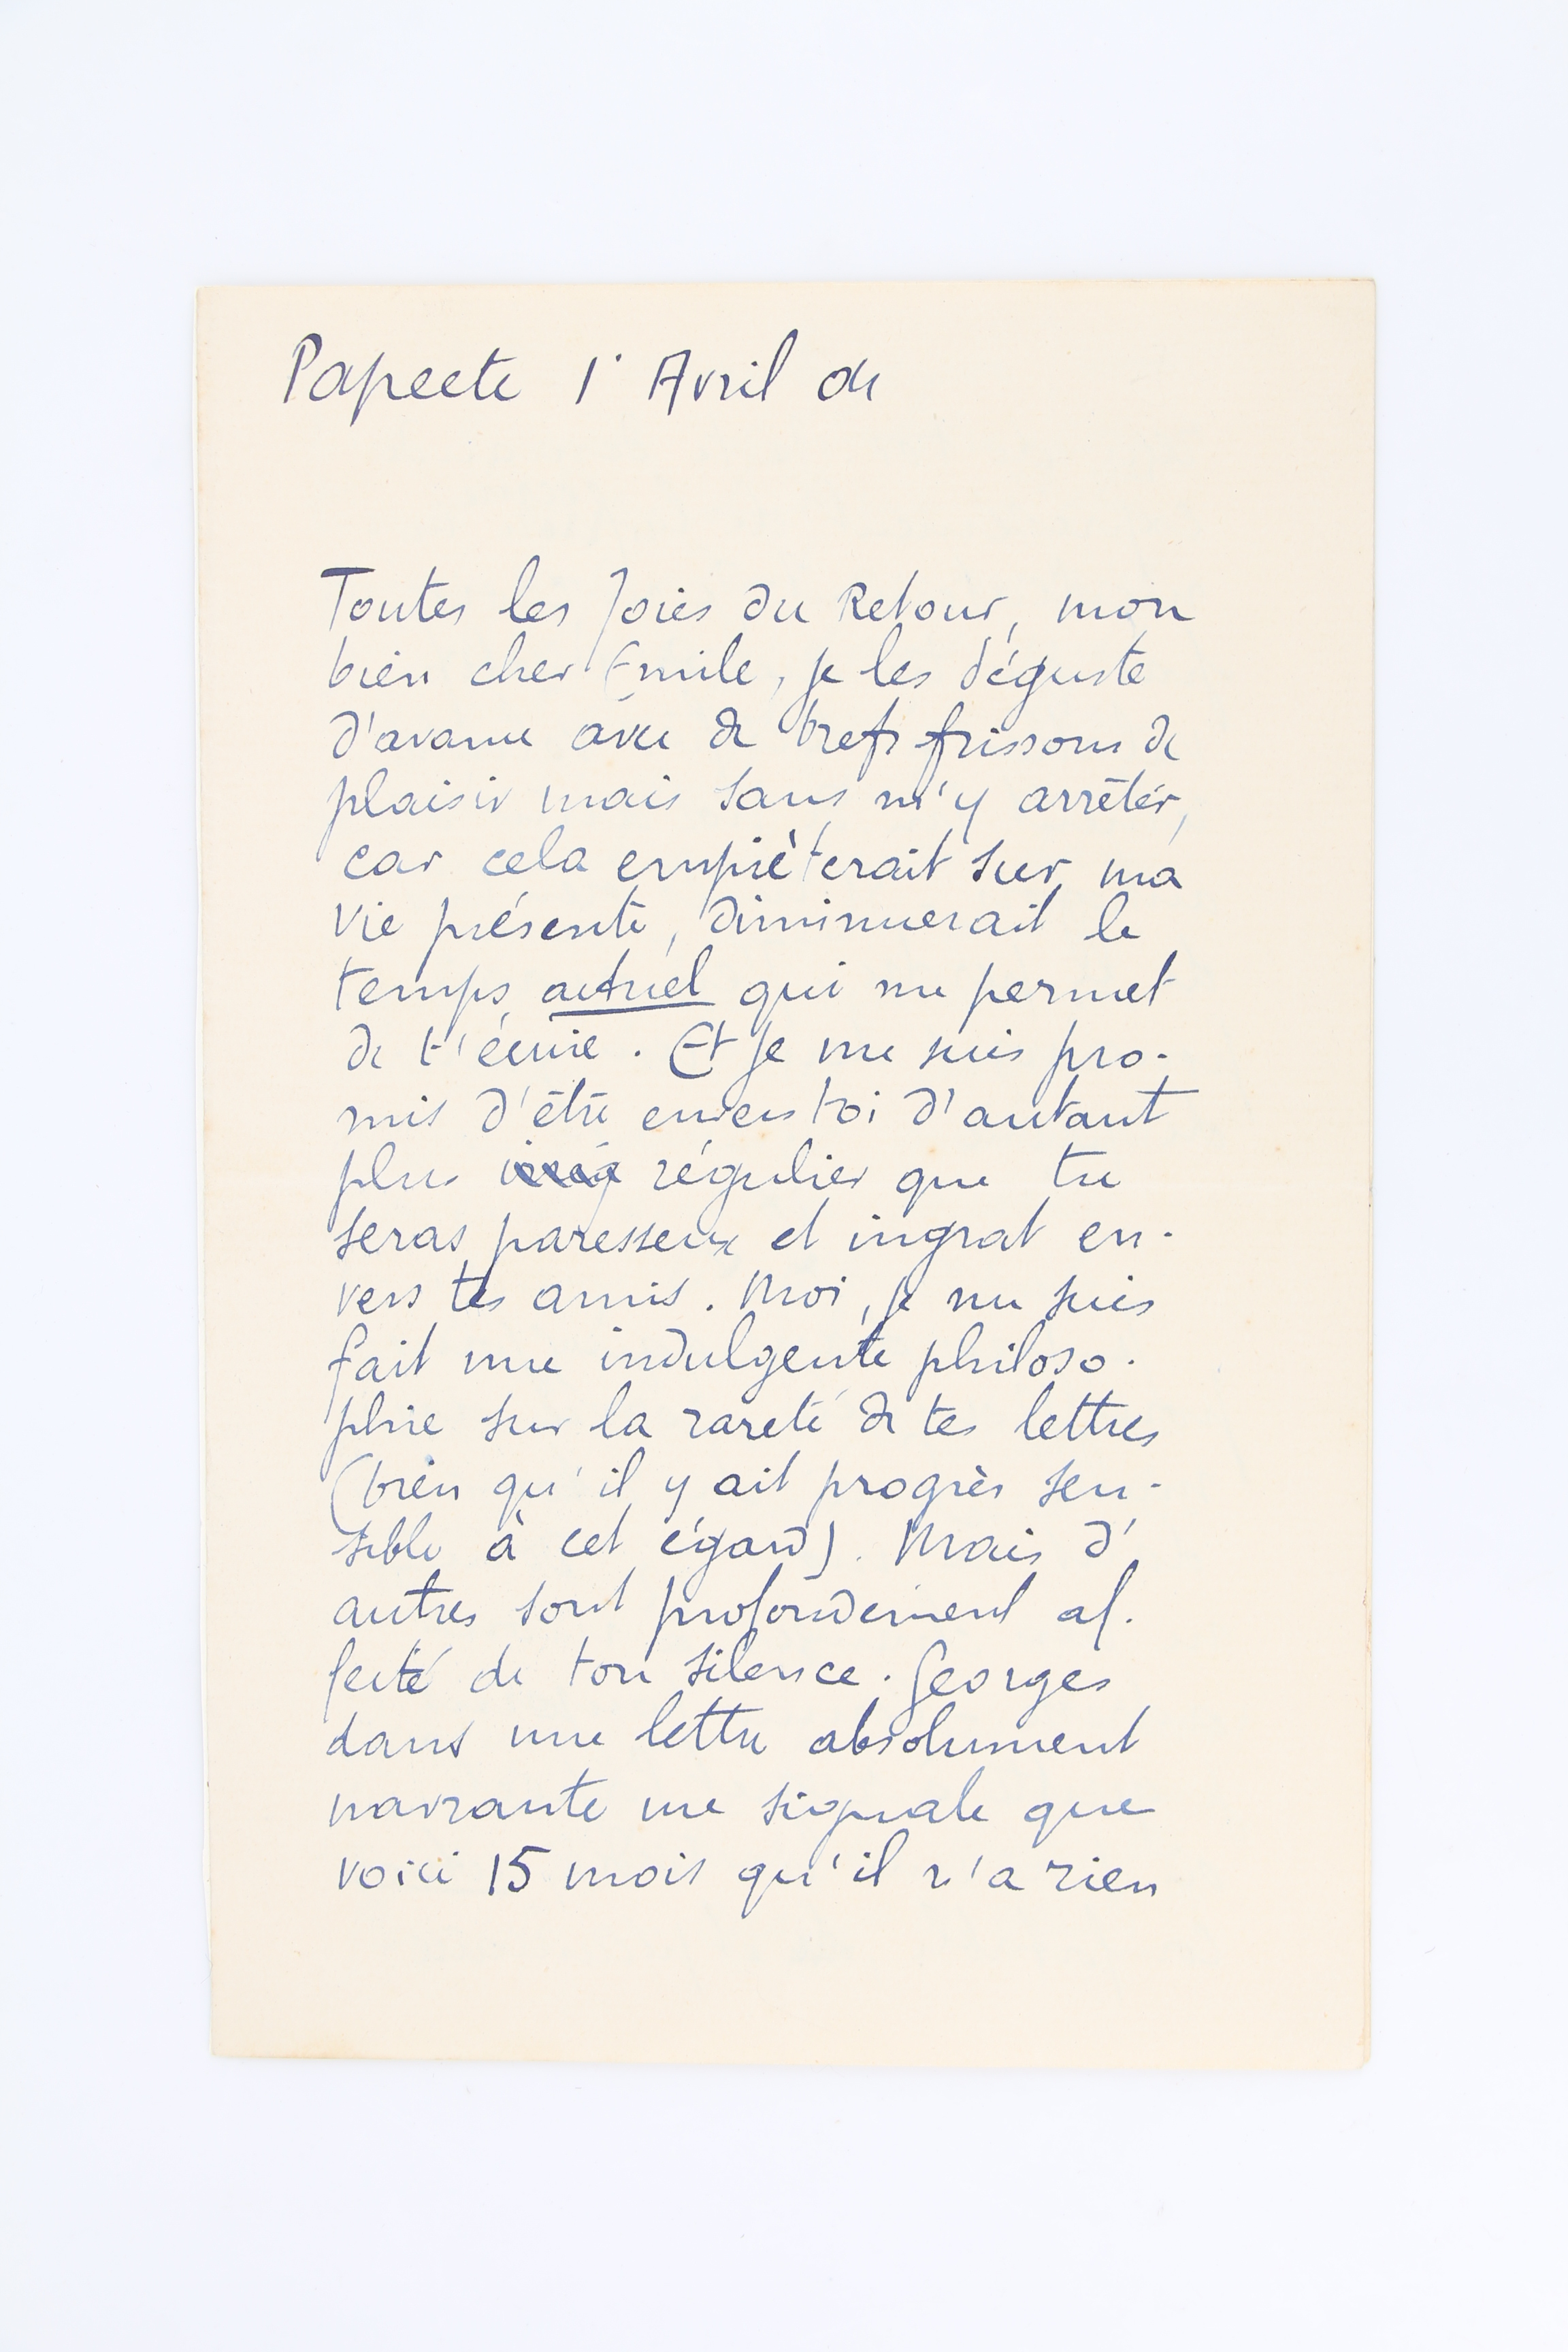 Papeete 1' Avril 04
Toutes les Joies du Retour, mon
bien cher Emile, je les déguste
d'avance avec de brefs frissons de
plaisir mais sans m'y arrêter,
car cela empièterait sur ma
vie présente, diminuerait le
temps actuel qui me permet
de t'écrire. Et je me suis pro-
mis d'être envers toi d'autant
plus irrég régulier que tu
seras paresseux et ingrat en-
vers tes amis. Moi, je me suis
fait une indulgente philoso-
phie sur la rareté de tes lettres
(bien qu'il y ait progrès sen-
sible à cet égard). Mais d'
autres sont profondément af-
fecté de ton silence. Georges
dans une lettre absolument
navrante me signale que
voici 15 mois qu'il n'a rien